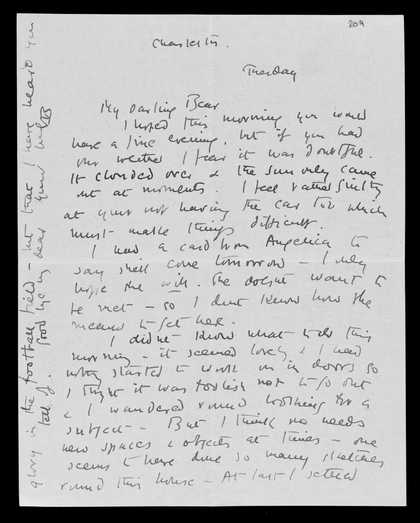 209
Charleston.
Tuesday
My Darling Bear
I hoped this morning you would
have a fine evening, but if you had
our weather I fear it was doubtful.
It clouded over & the sun only came
out at moments. I feel rather guilty
at your not having the car too which
must make things difficult.
I had a card from Angelica to
say she'll come tomorrow – I only
hope she will. She doesn't want to
be met – so I don't know how she
means to get here.
I didn't know what to do this
morning – it seemed lovely & I had
only started to work in doors so
I thought it was foolish not to go out
& I wandered round looking for a
subject – But I think one needs
new spaces & objects at times – one
seems to have done so many sketches
round this house – At last I settled
glory in the football field – but that I have heard you
tell of. Good bye my dear your